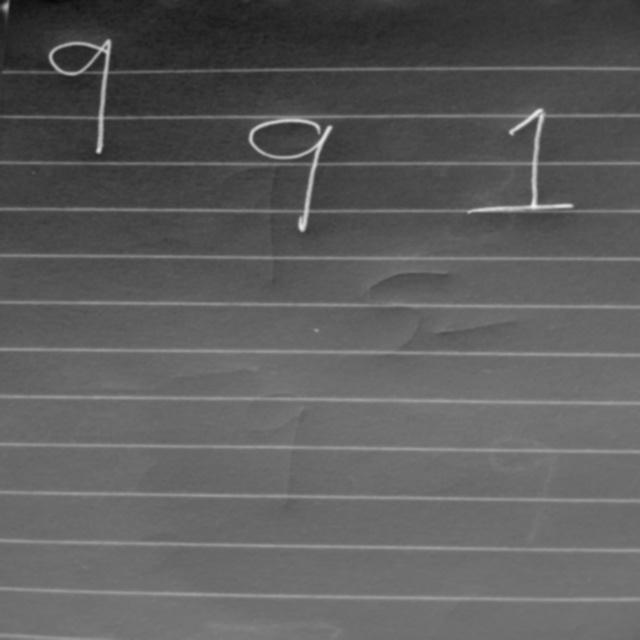 9 9 1